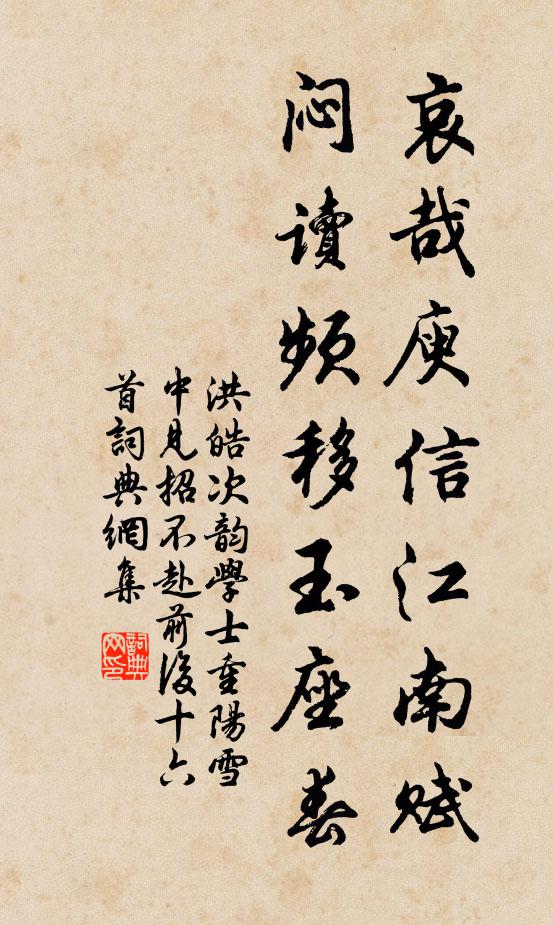 哀哉庾信江南赋
闷讀频移玉座春
洪皓次韵學士重陽雪
中見招不赴前後十六
首詞典網集
詞典网印